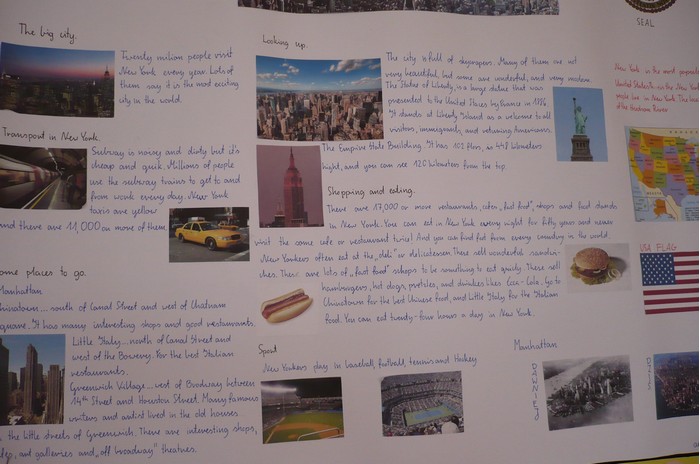 The big city.
Twenty milion people visit
New York every year. Lots of
them say it is the most exciting
city in the world.
Transport in New York
Subway is noisy and dirty but it's
cheap and quick. Millions of people
use the subway trains to get to and
from work every day. New York
taxis are yellow
and there are 11,000 ou more of them
ome places to go.
Manhattan
Chinatown... south of Canal Street and west of Chatham
quare. It has many interesting shops and good restaurants.
Little Italy... north of Canal Street and
west of the Bowery. For the best Italian
restaurants.
Greenwich Village... west of Brodway between
14th Street and Houston Street. Many famous
writers and artist lived in the old houses
the little streets of Greenwich. There are interesting shops,
and galleries and "off broadway" theatres.
Looking up.
The city is full of skyscrapers. Many of them are not
very beautiful, but some are wonderful, and very modern.
The Statue of Liberty, is a large statue that was
presented to the United States by France in 1886
It stands at Liberty Island as a welcome to all
visitors, immigrants, and returning Americans.
The Empire State Building. It has 102 floors, is 449 kilometers
hight, and you can see 120 kilometers from the top.
Shopping and eating.
There are 17,000 or more restaurants, "fast food", shops and food stands,
in New York. You can eat in New York every night for fifty years and never
visit the same cafe or restaurant twice! And you can find food from every country in the world.
New Yorkers often eat at the "deli" or delicatessen. These sell wonderful sandwi-
ches. There are lots of "fast food" shops to be something to eat quickly. These sell
hamburgers, hot dogs, pretzles, and drinks likes Coca-Cola. Go to
Chinatown for the best Chinese food, and Little Italy for the Italian
food. You can eat twenty-four hours a day in New York.
Sport
New Yorkers play in baseball, football, tennis and Hockey
Manhattan
SEAL
New York is the most
United States. It is the New York
people live in New York. The
of the Hudson River
USA FLAG